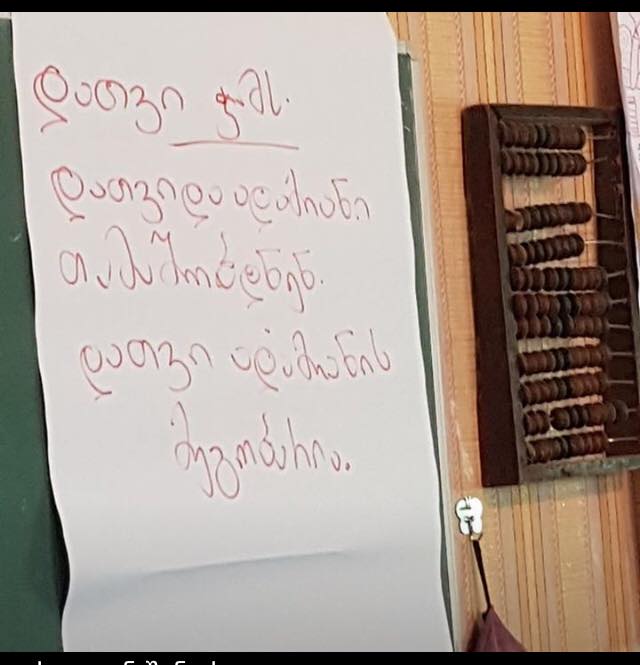 დათვი ჯმს.
დათვი და ადამიანი
თამაშობდნენ.
დათვი ადამიანის
მეგობარია.